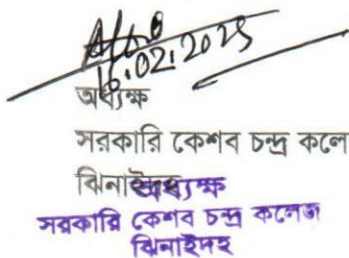 16.02.2025
অধ্যক্ষ
সরকারি কেশব চন্দ্র কলে
ঝিনাইদহ
অধ্যক্ষ
সরকারি কেশব চন্দ্র কলেজ
ঝিনাইদহ